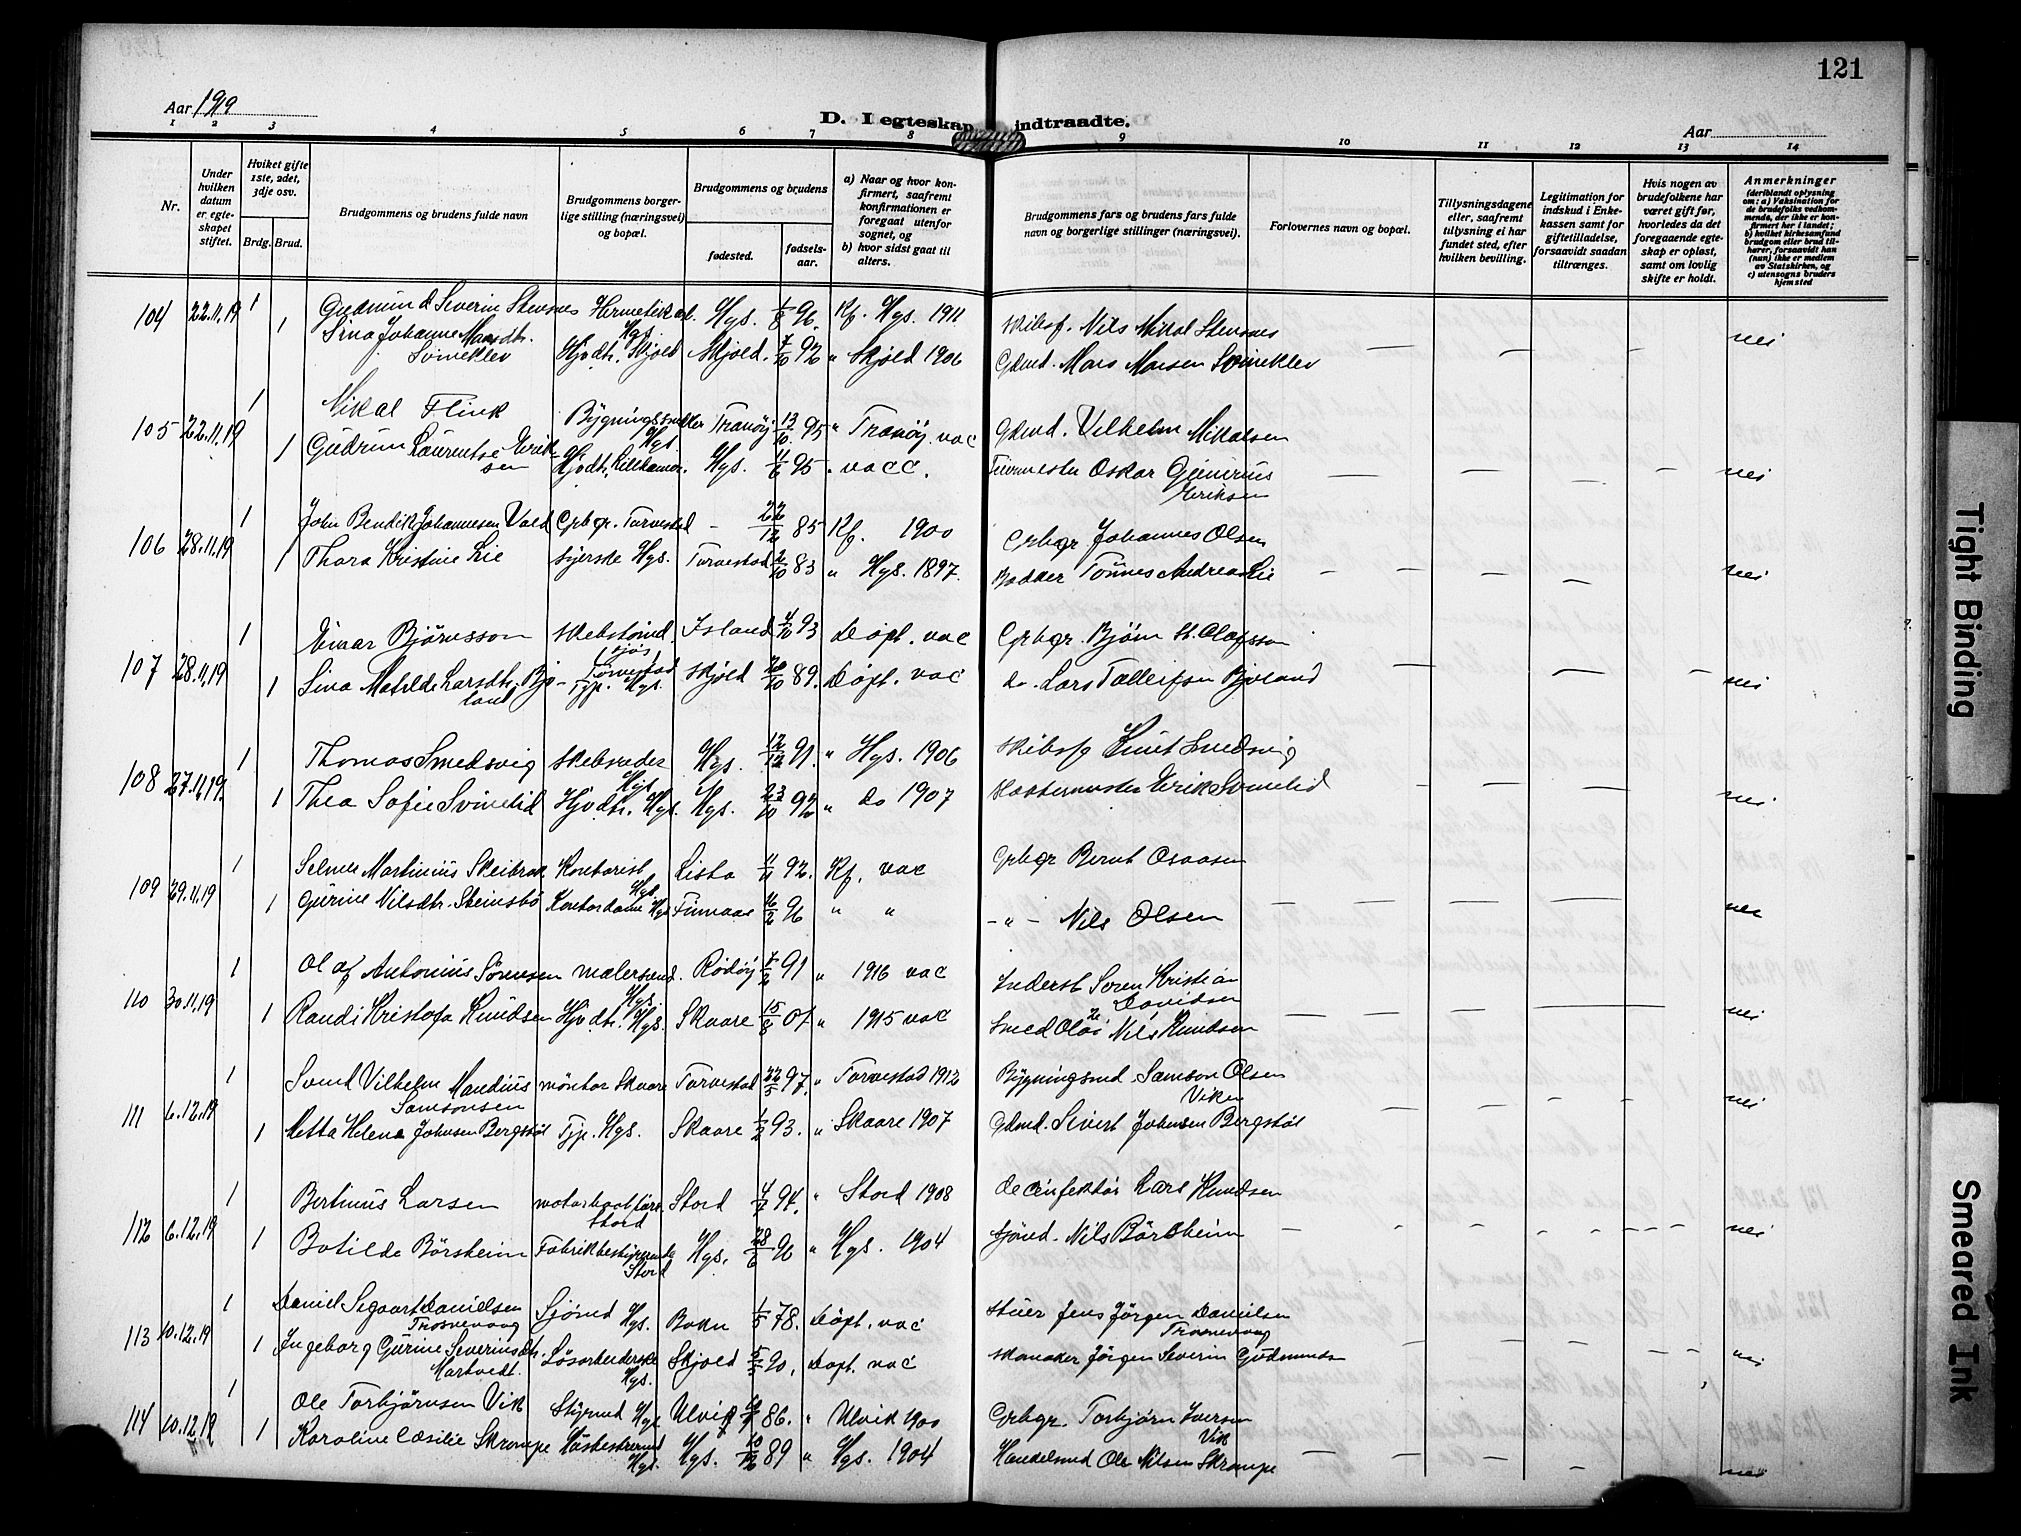 121
Aar 1919
D. I egteskap indtraadte.
Aar
1 2 3 4 5 6 7 8 9 10 11 12 13 14
Nr.
Under hvilken datum er egteskapet stiftet.
Hviket gifte 1ste, 2det, 3dje osv.
Brdg. Brud.
Brudgommens og brudens fulde navn
Brudgommens borgerlige stilling (næringsvei) og bopæl.
Brudgommens og brudens
fødested.
fødselsaar.
a) Naar og hvor konfirmert, saafremt konfirmationen er foregaat utenfor sognet, og
b) hvor sidst gaat til alters.
Brudgommens fars og brudens fars fulde navn og borgerlige stillinger (næringsvei).
Forlovernes navn og bopæl.
Tillysningsdagene eller, saafremt tillysning ei har fundet sted, efter hvilken bevilling.
Legitimation for indskud i Enkekassen samt for giftetilladelse, forsaavidt saadan tiltrænges.
Hvis nogen av brudefolkene har været gift før, hvorledes da det foregaaende egteskap er opløst, samt om lovlig skifte er holdt.
Anmerkninger
(deriblandt oplysning om: a) Vaksination for de brudefolks vedkommende, der ikke er konfirmert her i landet; b) hvilket kirkesamfund brudgom eller brud tilhører, forsaavidt han (hun) ikke er medlem av Statskirken, og c) utensogns bruders hjemsted
104 22.11.19 1 Gudmund Severin Stensnes Hermetikarb. Hgs. 1/8 96. Kf. Hgs. 1911 Skibsf. Nils Mikal Stensnes
1 Sina Johanne Monsdtr. Svineklev Hjvdtr. Skjold Skjold. 7/10 92 " Skjold 1906 Gdmd. Mons Monsen Svineklev nei
105 22.11.19 1 Mikal Flink Bygningssnekker Hgs. Tranöy 13/10 95 " Tranöy. vac Gdmd. Vilhelm Mikalsen
1 Gudrun Lauentse Eriksen Hjvdtr. Lillehamr. Hgs. 11/6 95 . vacc. Oskar Gunerius Eriksen nei
106 28.11.19 1 John Bendik Johannesen Vold Grbgr. Torvestad - 22/12 85 Kf. 1900 Grbgr Johannes Olsen
1 Thora Kristine Lie Syerske Hgs. Torvestad 2/10 83 " Hgs. 1897. Bødker Tönnes Andreas Lie nei
107 28.11.19 1 Einar Björnsson Skibstömd. Island 4/10 93 Döpt. vac Grbgr. Björn St. Olafsson
1 Sina Matilde Larsdtr. Bjoland Tjp. Hgs. Skjold 20/10 89. Döpt. vac do. Lars Tolleifsen Bjoland nei
108 27.11.19. 1 Thomas Smedsvig Skibsreder Hgs. Hgs. 12/12 91. " Hgs. 1906 Skibsfg Knut Smedsvig
1 Thea Sofie Svinelid Hjvdtr. Hgs. Hgs. 23/10 92 " do 1907 Erik Svinelid nei
109 29.11.19 1 Selmer Martinius Skeibrok Kontorist Hgs. Lista 11/11 92. Kf. vac Grbgr Bernt Osaasen
1 Gurine Nilsdtr. Steinsbö Kontordame Hgs Finnaas 16/2 96 " " - " - Nils Olsen nei
110 30.11.19 1 Olaf Antonius Sörensen malersvend. Hgs. Rödöy 7/2 91 " 1916 vac Inderst Sören Kristian Davidsen
1 Randi Kristofa Knudsen Hjvdtr. Hgs. Skaare 15/8 01 " 1915 vac Smed Olai Nils Knudsen nei
111 6.12.19 1 Svend Vilhelm Mandius Samsonsen montør Skaare Torvestad 22/5 97. " Torvestad 1912 Bygningssnd. Samson Olsen Viken
1 Metta Helena Johnsen Bergstöl Tjp. Hgs. Skaare 1/2 93. " Skaare 1907 Gdmd. Sivert Johnsen Bergstöl nei
112 6.12.19 1 Bertinius Larsen Stord Stord 4/7 94. " Stord 1908 Desinfektör Lars Knudsen
1 Botilde Börsheim Fabrikbestyrerinde Stord Hgs. 28/6 96 " Hgs. 1904 Sjömd. Nils Börsheim nei
113 10.12.19 1 Daniel Segaart Danielsen Trosnevaag Sjömd Hgs. Bokn 1/5 78. Döpt. vac Stuer Jens Jörgen Danielsen Trosnevaag
1 Ingeborg Gurine Severinsdtr. Martvedt. Lösarbeiderske Hgs. Skjold 5/5 90. Döpt. vac Skomaker Jörgen Severin Gudmunds nei
114 10.12.19 1 Ole Torbjörnsen Vik Styrmd Hgs Ulvik 86. " Ulvik 1900 Grbgr. Torbjörn Iversen Vik
1 Karoline Cæsilie Skrompe Hgs. Hgs. 10/12 89 " Hgs. 1904 Handelsmd Ole Nilsen Skrompe nei
Tight Binding
Smeared Ink